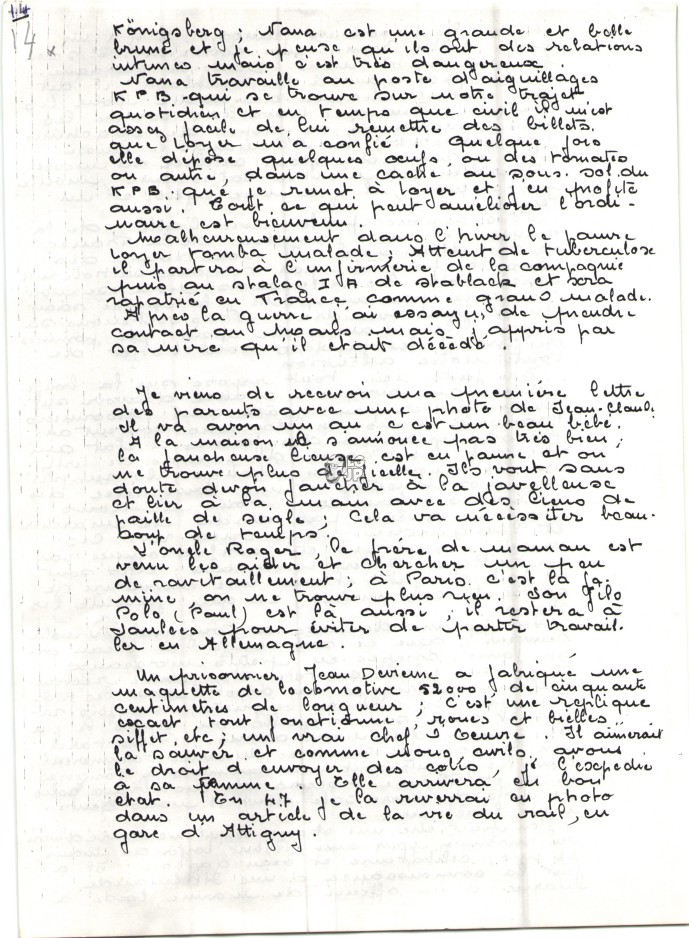 14
14 x
Königsberg ; Nana est une grande et belle
brune et je pense qu'ils ont des relations
intimes mais c'est très dangereux .
Nana travaille au poste d'aiguillages
KPB qui se trouve sur notre trajet
quotidien et en temps que civil il m'est
assez facile de lui remettre des billets
que Loyer m'a confié . Quelque fois
elle dépose quelques oeufs, ou des tomates
ou autre, dans une cache au sous-sol du
KPB que je remet à Loyer et j'en profite
aussi . Tout ce qui peut améliorer l'ordi-
naire est bienvenu .
Malheureusement dans l'hiver le pauvre
Loyer tomba malade ; Atteint de tuberculose
il partira à l'infirmerie de la compagnie
puis au stalag IA de Stablack et sera
rapatrié en France comme grand malade.
Après la guerre j'ai essayer de prendre
contact au Mans mais j'appris par
sa mère qu'il était décédé .
Je viens de recevoir ma première lettre
des parents avec une photo de Jean-Claude
Il va avoir un an c'est un beau bébé.
A la maison ça s'annonce pas très bien ;
la faucheuse lieuse est en panne et on
ne trouve plus de ficelle . Ils vont sans
doute devoir faucher à la javelleuse
et lier à la main avec des liens de
paille de seigle ; Cela va nécessiter beau-
coup de temps.
L'oncle Roger, le frère de maman est
venu les aider et chercher un peu
de ravitaillement ; à Paris c'est la fa-
mine, on ne trouve plus rien . Son fils
Polo (Paul) est là aussi, il restera à
Saulces pour éviter de partir travail-
ler en Allemagne .
Un prisonnier, Jean Devienne a fabriqué une
maquette de locomotive 52000, de cinquante
centimètres de longueur ; c'est une replique
exacte, tout fonctionne, roues et bielles
sifflet, etc ; un vrai chef d'oeuvre . Il aimerait
la sauver et comme nous civils avons
le droit d'envoyer des colis, je l'expédie
à sa femme . Elle arrivera en bon
état . En 47 je la reverrai en photo
dans un article de la vie du rail, en
gare d'Attigny .